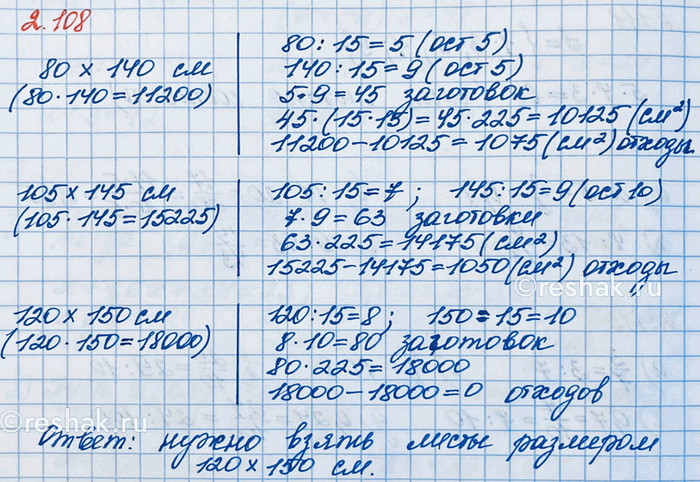 2.108
80 : 15 = 5 (ост 5)
80 × 140 см
140 : 15 = 9 (ост 5)
(80·140=11200)
5·9 = 45 заготовок
45·(15·15)=45·225=10125 (см²)
11200-10125=1075 (см²) отходы
105×145 см
105:15=7; 145:15=9 (ост 10)
(105·145=15225)
7·9=63 заготовки
63·225=14175 (см²)
15225-14175=1050 (см²) отходы
120×150 см
120:15=8; 150÷15=10
(120·150=18000)
8·10=80 заготовок
80·225=18000
18000-18000=0 отходов
Ответ: нужно взять листы размером
120×150 см.
©reshak.ru
©reshak.ru